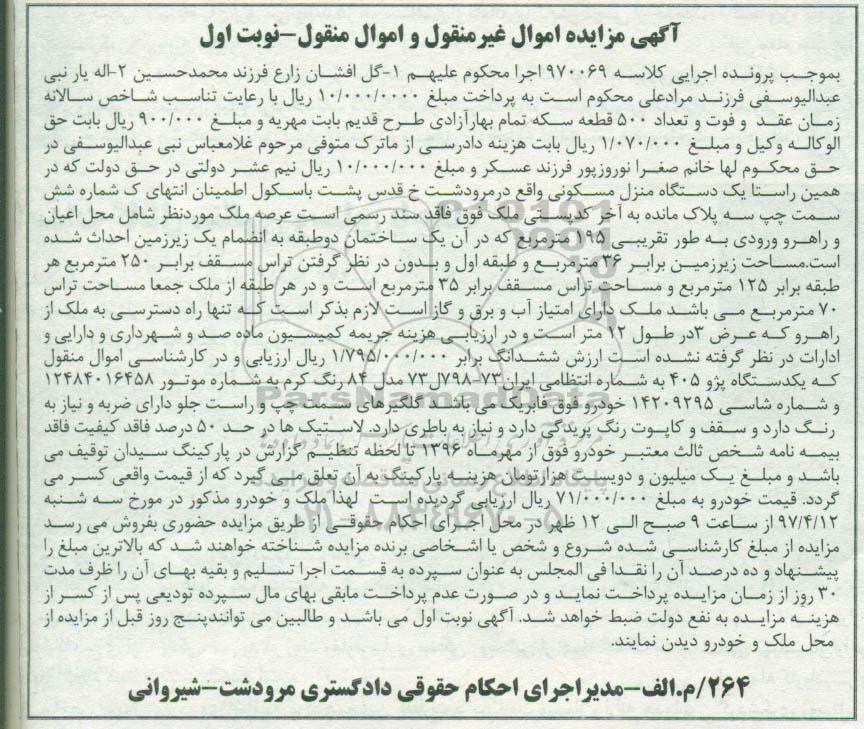 آگهی مزایده اموال غیرمنقول و اموال منقول-نوبت اول
بموجب پرونده اجرایی کلاسه ۹۷۰۰۶۹ اجرا محکوم علیهم ۱-گل افشان زارع فرزند محمدحسین ۲-اله یار نبی
عبدالیوسفی فرزند مرادعلی محکوم است به پرداخت مبلغ ۱۰/۰۰۰/۰۰۰۰ ریال با رعایت تناسب شاخص سالانه
زمان عقد و فوت و تعداد ۵۰۰ قطعه سکه تمام بهارآزادی طرح قدیم بابت مهریه و مبلغ ۹۰۰/۰۰۰ ریال بابت حق
الوکاله وکیل و مبلغ ۱/۰۷۰/۰۰۰ ریال بابت هزینه دادرسی از ماترک متوفی مرحوم غلامعباس نبی عبدالیوسفی در
حق محکوم لها خانم صغرا نوروزپور فرزند عسکر و مبلغ ۱۰/۰۰۰/۰۰۰ ریال نیم عشر دولتی در حق دولت که در
همین راستا یک دستگاه منزل مسکونی واقع درمرودشت خ قدس پشت باسکول اطمینان انتهای ک شماره شش
سمت چپ سه پلاک مانده به آخر کدپستی ملک فوق فاقد سند رسمی است عرصه ملک موردنظر شامل محل اعیان
و راهرو ورودی به طور تقریبی ۱۹۵ مترمربع که در آن یک ساختمان دوطبقه به انضمام یک زیرزمین احداث شده
است.مساحت زیرزمین برابر ۳۶ مترمربع و طبقه اول و بدون در نظر گرفتن تراس مسقف برابر ۲۵۰ مترمربع هر
طبقه برابر ۱۲۵ مترمربع و مساحت تراس مسقف برابر ۳۵ مترمربع است و در هر طبقه از ملک جمعا مساحت تراس
۷۰ مترمربع می باشد ملک دارای امتیاز آب و برق و گاز است لازم بذکر است که تنها راه دسترسی به ملک از
راهرو که عرض ۳در طول ۱۲ متر است و در ارزیابی هزینه جریمه کمیسیون ماده صد و شهرداری و دارایی و
ادارات در نظر گرفته نشده است ارزش ششدانگ برابر ۱/۷۹۵/۰۰۰/۰۰۰ ریال ارزیابی و در کارشناسی اموال منقول
که یکدستگاه پژو ۴۰۵ به شماره انتظامی ایران۷۳-۷۹۸ل۷۳ مدل ۸۴ رنگ کرم به شماره موتور ۱۲۴۸۴۰۱۶۴۵۸
و شماره شاسی ۱۴۲۰۹۲۹۵ خودرو فوق فابریک می باشد گلگیرهای سمت چپ و راست جلو دارای ضربه و نیاز به
رنگ دارد و سقف و کاپوت رنگ پریدگی دارد و نیاز به باطری دارد. لاستیک ها در حد ۵۰ درصد فاقد کیفیت فاقد
بیمه نامه شخص ثالث معتبر خودرو فوق از مهرماه ۱۳۹۶ تا لحظه تنظیم گزارش در پارکینگ سیدان توقیف می
باشد و مبلغ یک میلیون و دویست هزار تومان هزینه پارکینگ به آن تعلق می گیرد که از قیمت واقعی کسر می
گردد. قیمت خودرو به مبلغ ۷۱/۰۰۰/۰۰۰ ریال ارزیابی گردیده است لهذا ملک و خودرو مذکور در مورخ سه شنبه
۹۷/۴/۱۲ از ساعت ۹ صبح الی ۱۲ ظهر در محل اجرای احکام حقوقی از طریق مزایده حضوری بفروش می رسد
مزایده از مبلغ کارشناسی شده شروع و شخص یا اشخاصی برنده مزایده شناخته خواهند شد که بالاترین مبلغ را
پیشنهاد و ده درصد آن را نقدا فی المجلس به عنوان سپرده به قسمت اجرا تسلیم و بقیه بهای آن را ظرف مدت
۳۰ روز از زمان مزایده پرداخت نماید و در صورت عدم پرداخت مابقی بهای مال سپرده تودیعی پس از کسر از
هزینه مزایده به نفع دولت ضبط خواهد شد. آگهی نوبت اول می باشد و طالبین می توانندپنج روز قبل از مزایده از
محل ملک و خودرو دیدن نمایند.
۲۶۴/م.الف-مدیراجرای احکام حقوقی دادگستری مرودشت-شیروانی
ParsNamadData